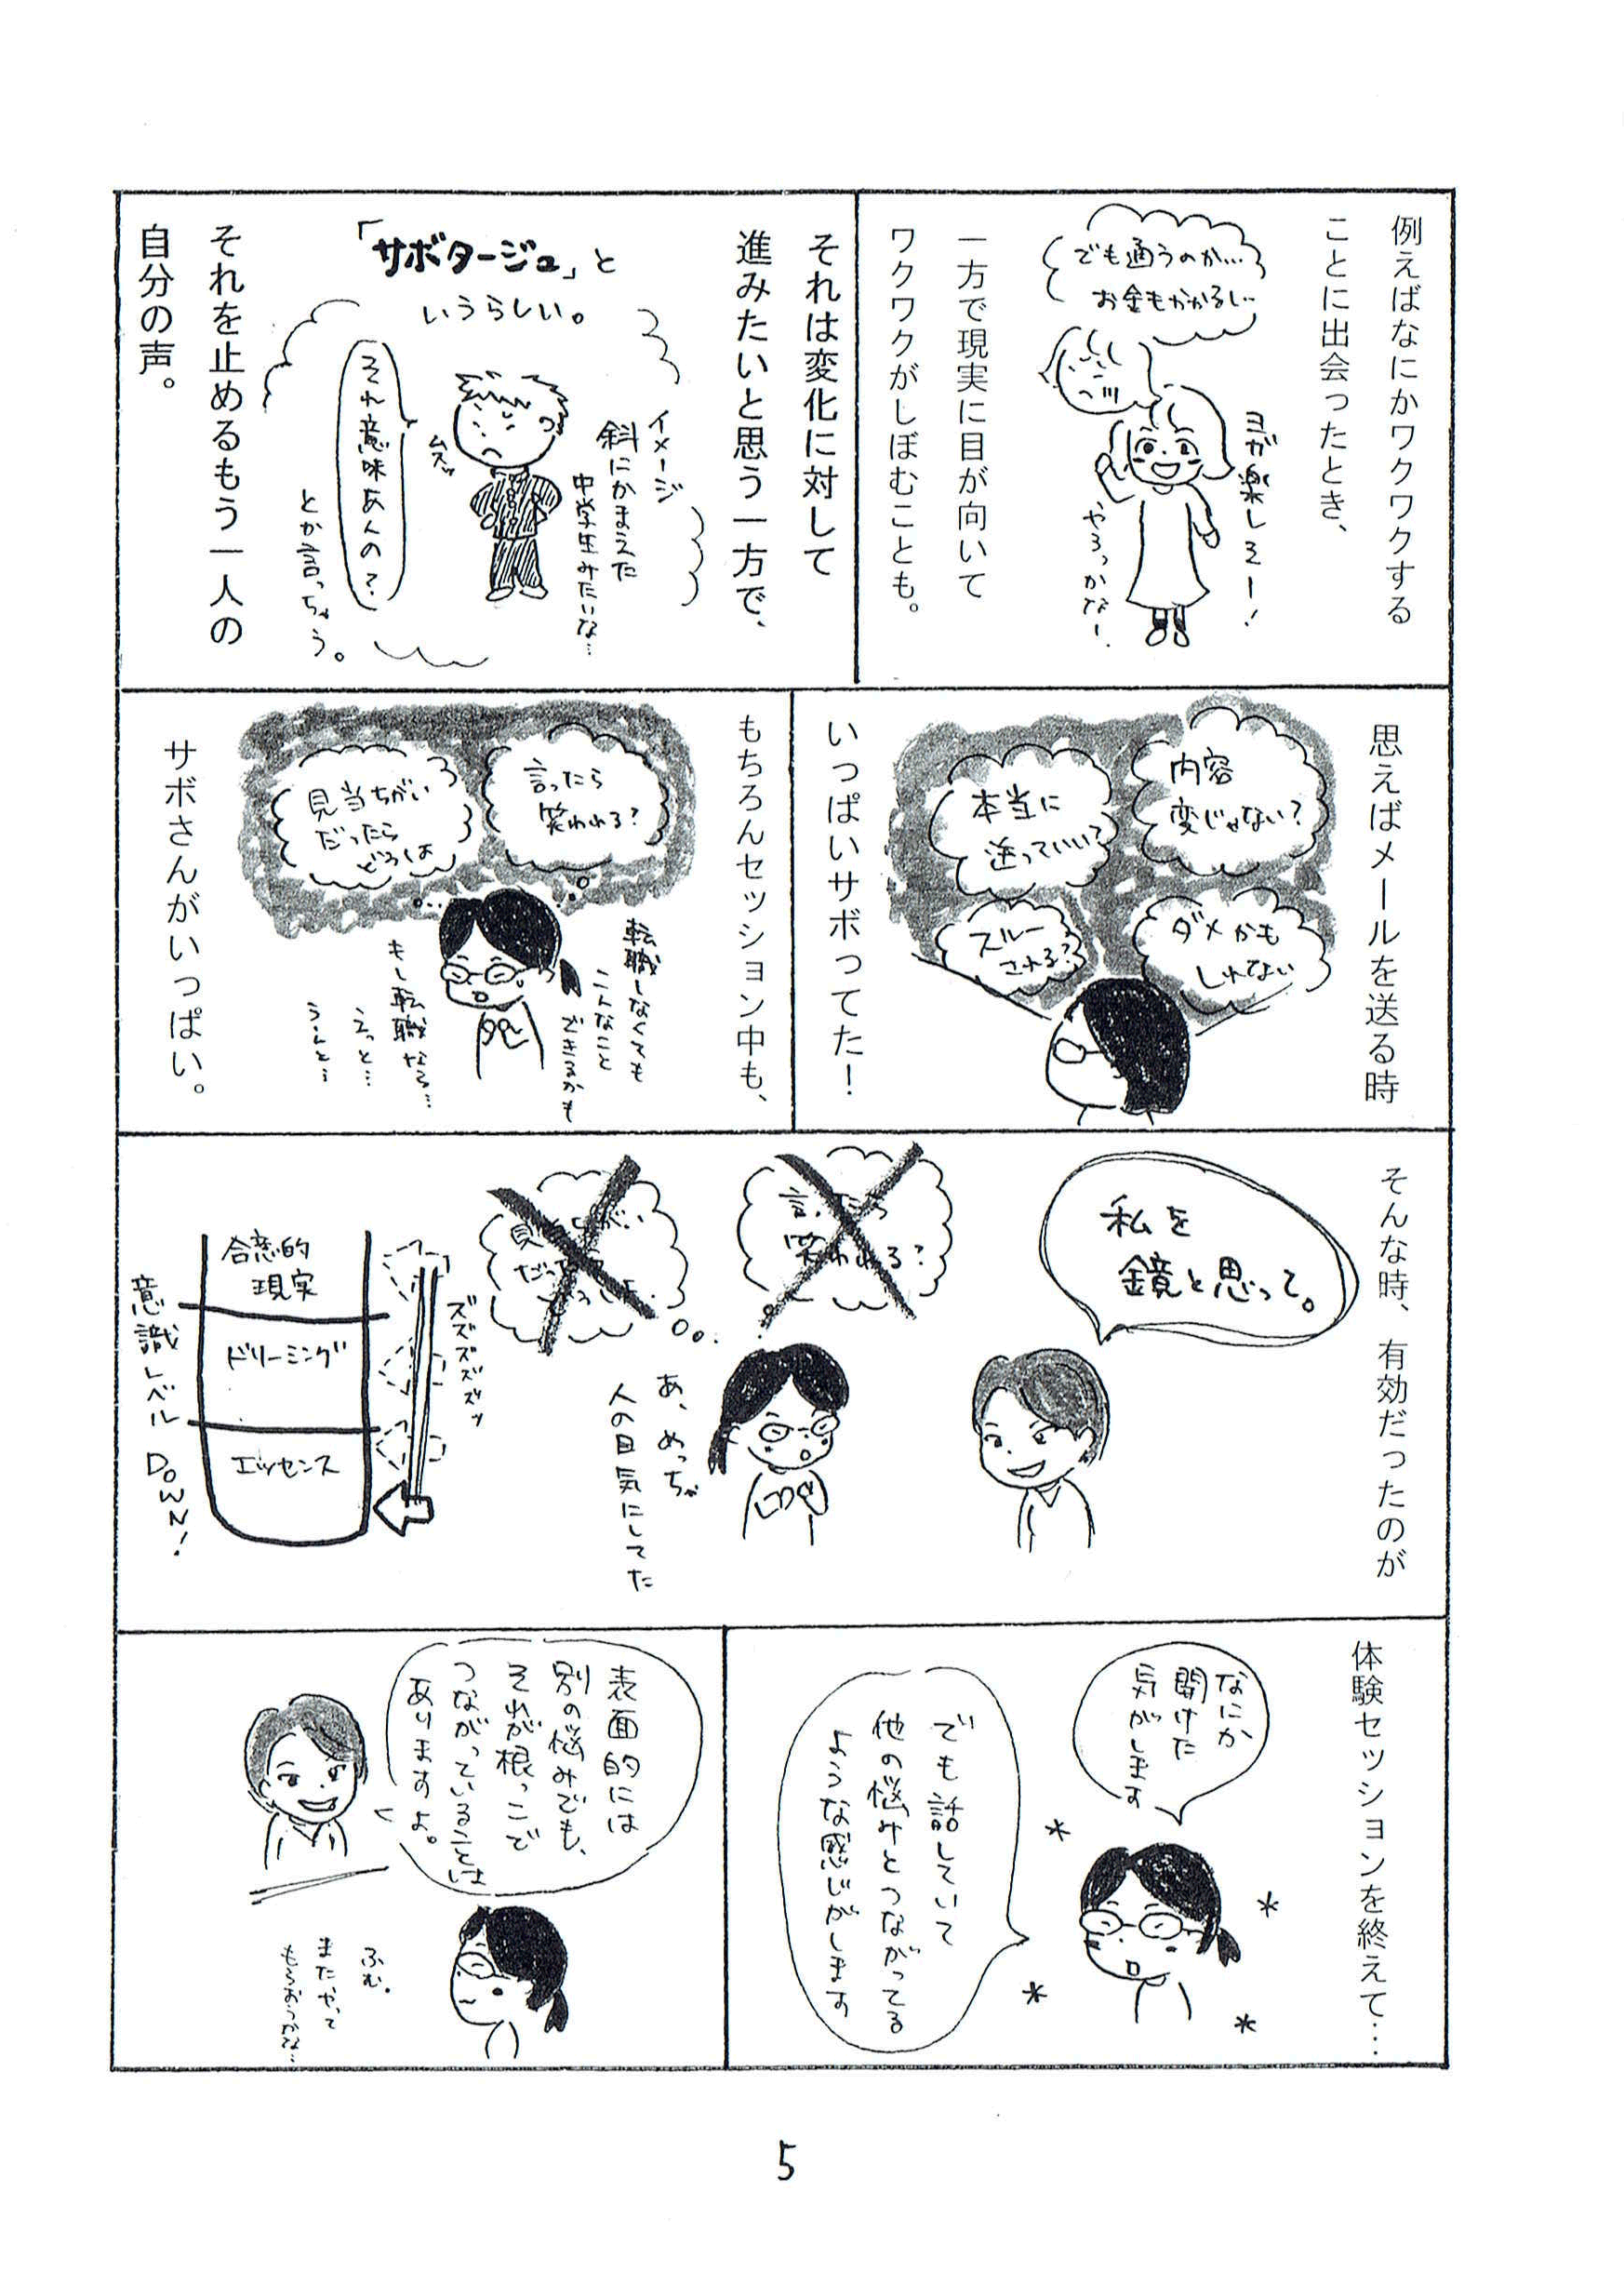 例えばなにかワクワクする
ことに出会ったとき、
でも通うのか…
お金もかかるし…
ヨガ楽しそー!
やろっかなー.
一方で現実に目が向いて
ワクワクがしぼむことも。
それは変化に対して
進みたいと思う一方で、
「サボタージュ」と
いうらしい。
イメージ
斜にかまえた
中学生みたいな…
ムスッ
それ意味あんの?
とか言っちゃう。
それを止めるもう一人の
自分の声。
思えばメールを送る時
内容
変じゃない?
本当に
送っていい?
ダメかも
しれない
スルー
される?
いっぱいサボってた!
もちろんセッション中も、
言ったら
笑われる?
見当ちがい
だったら
どうしよ
転職しなくても
こんなこと
できるかも
もし転職なら…
えっと…
うーんと…
サボさんがいっぱい。
そんな時、有効だったのが
私を
鏡と思って。
言ったら
笑われる?
見当ちがい
だったら
あ、めっちゃ
人の目気にしてた
ズズズズズッ
合意的
現実
ドリーミング
エッセンス
意識レベル DOWN!
体験セッションを終えて…
なにか
開けた
気がします
でも話していて
他の悩みとつながってる
ような感じがします
表面的には
別の悩みでも、
それが根っこで
つながっていることは
ありますよ。
ふむ。
またやって
もらおうかな…
5